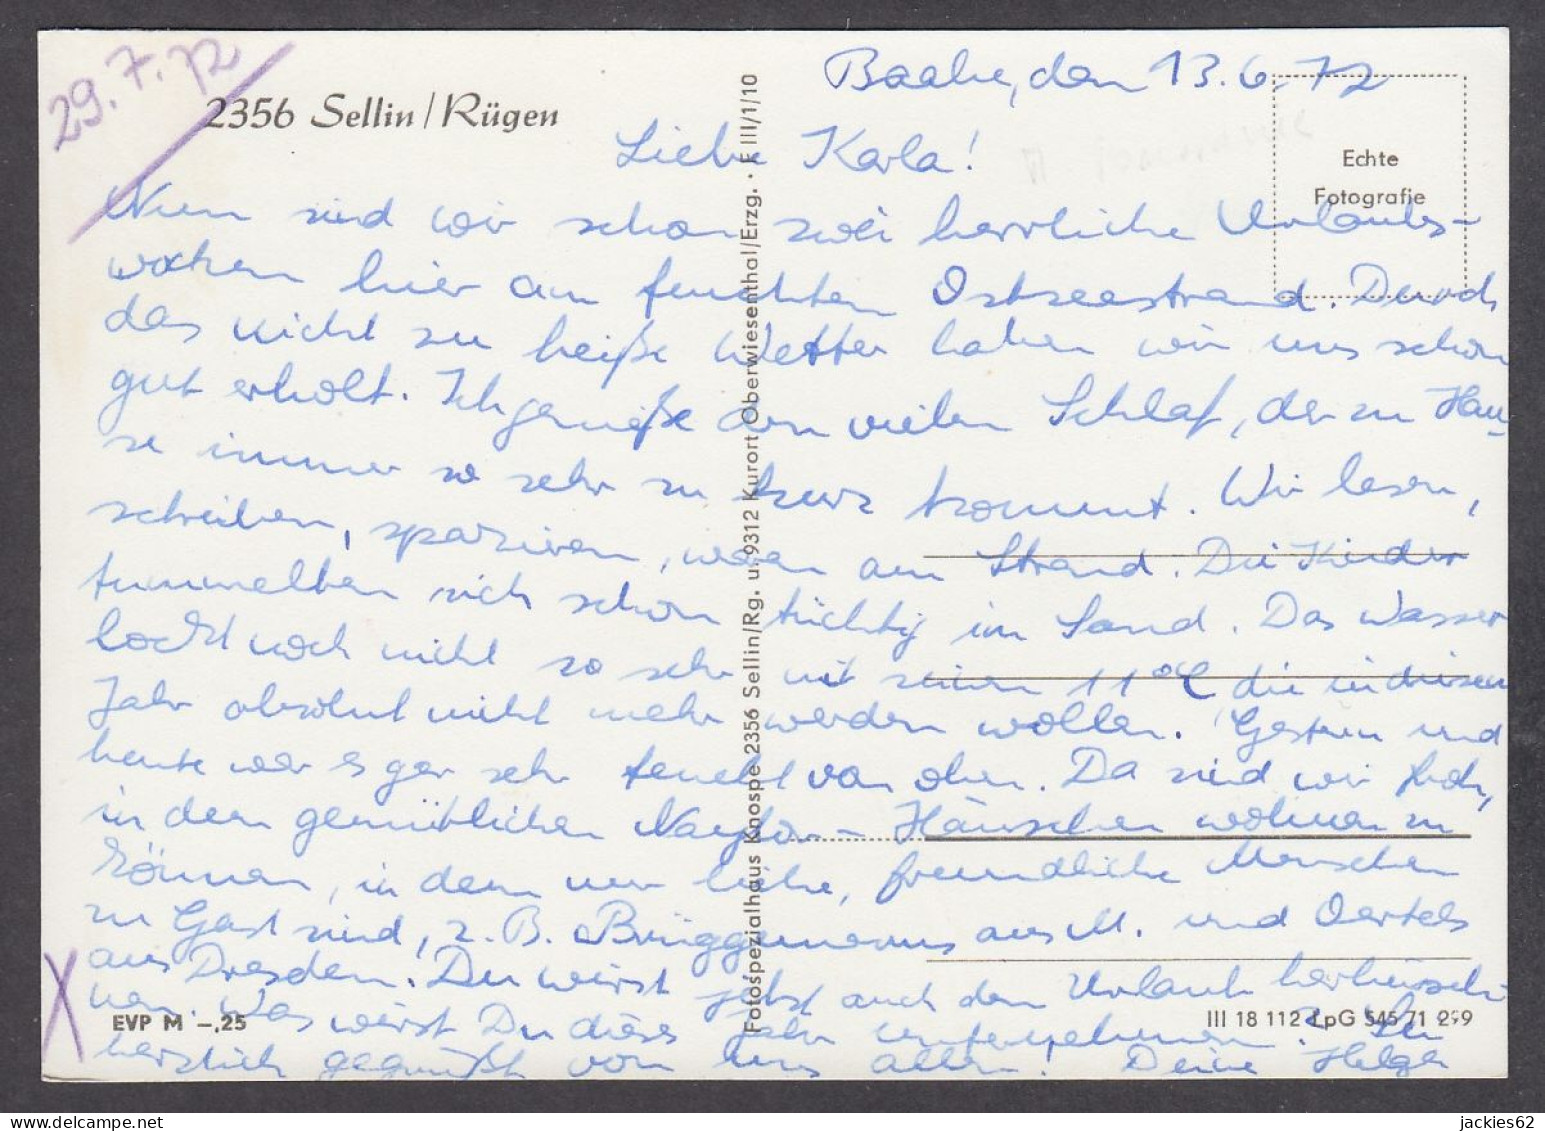 29.7.72
2356 Sellin/Rügen
Baabe, den 13.6.72
Echte
Fotografie
Liebe Karla!
Nun sind wir schon zwei herrliche Urlaubs-
wochen hier am feuchten Ostseestrand. Durch
das nicht zu heiße Wetter haben wir uns schon
gut erholt. Ich genieße den vielen Schlaf, der zu Hau-
se immer so sehr zu kurz kommt. Wir lesen,
schreiben, spazieren, waren am Strand. Die Kinder
tummelten sich schon tüchtig im Sand. Das Wasser
lockt noch nicht so sehr mit seinen 11°C die in diesem
Jahr absolut nicht mehr werden wollen. Gestern und
heute war es gar sehr feucht von oben. Da sind wir froh,
in dem gemütlichen Nayton-Häuschen wohnen zu
können, in dem nur liebe, freundliche Menschen
zu Gast sind, z.B. Brüggemanns aus M. und Oertels
aus Dresden. Du wirst jetzt auch den Urlaub herbeiseh-
nen. Was wirst Du dieses Jahr unternehmen? Sei
herzlich gegrüßt von uns allen! Deine Helga
Fotospezialhaus Knospe 2356 Sellin/Rg. u. 9312 Kurort Oberwiesenthal/Erzg. · F III/1/10
EVP M -,25
III 18 112 LpG 545 71 299
jackies62